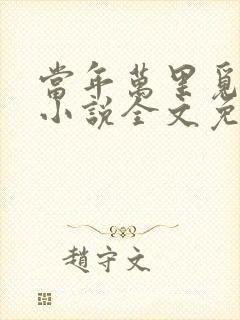 當年萬里覓
小說全文免
趙守文